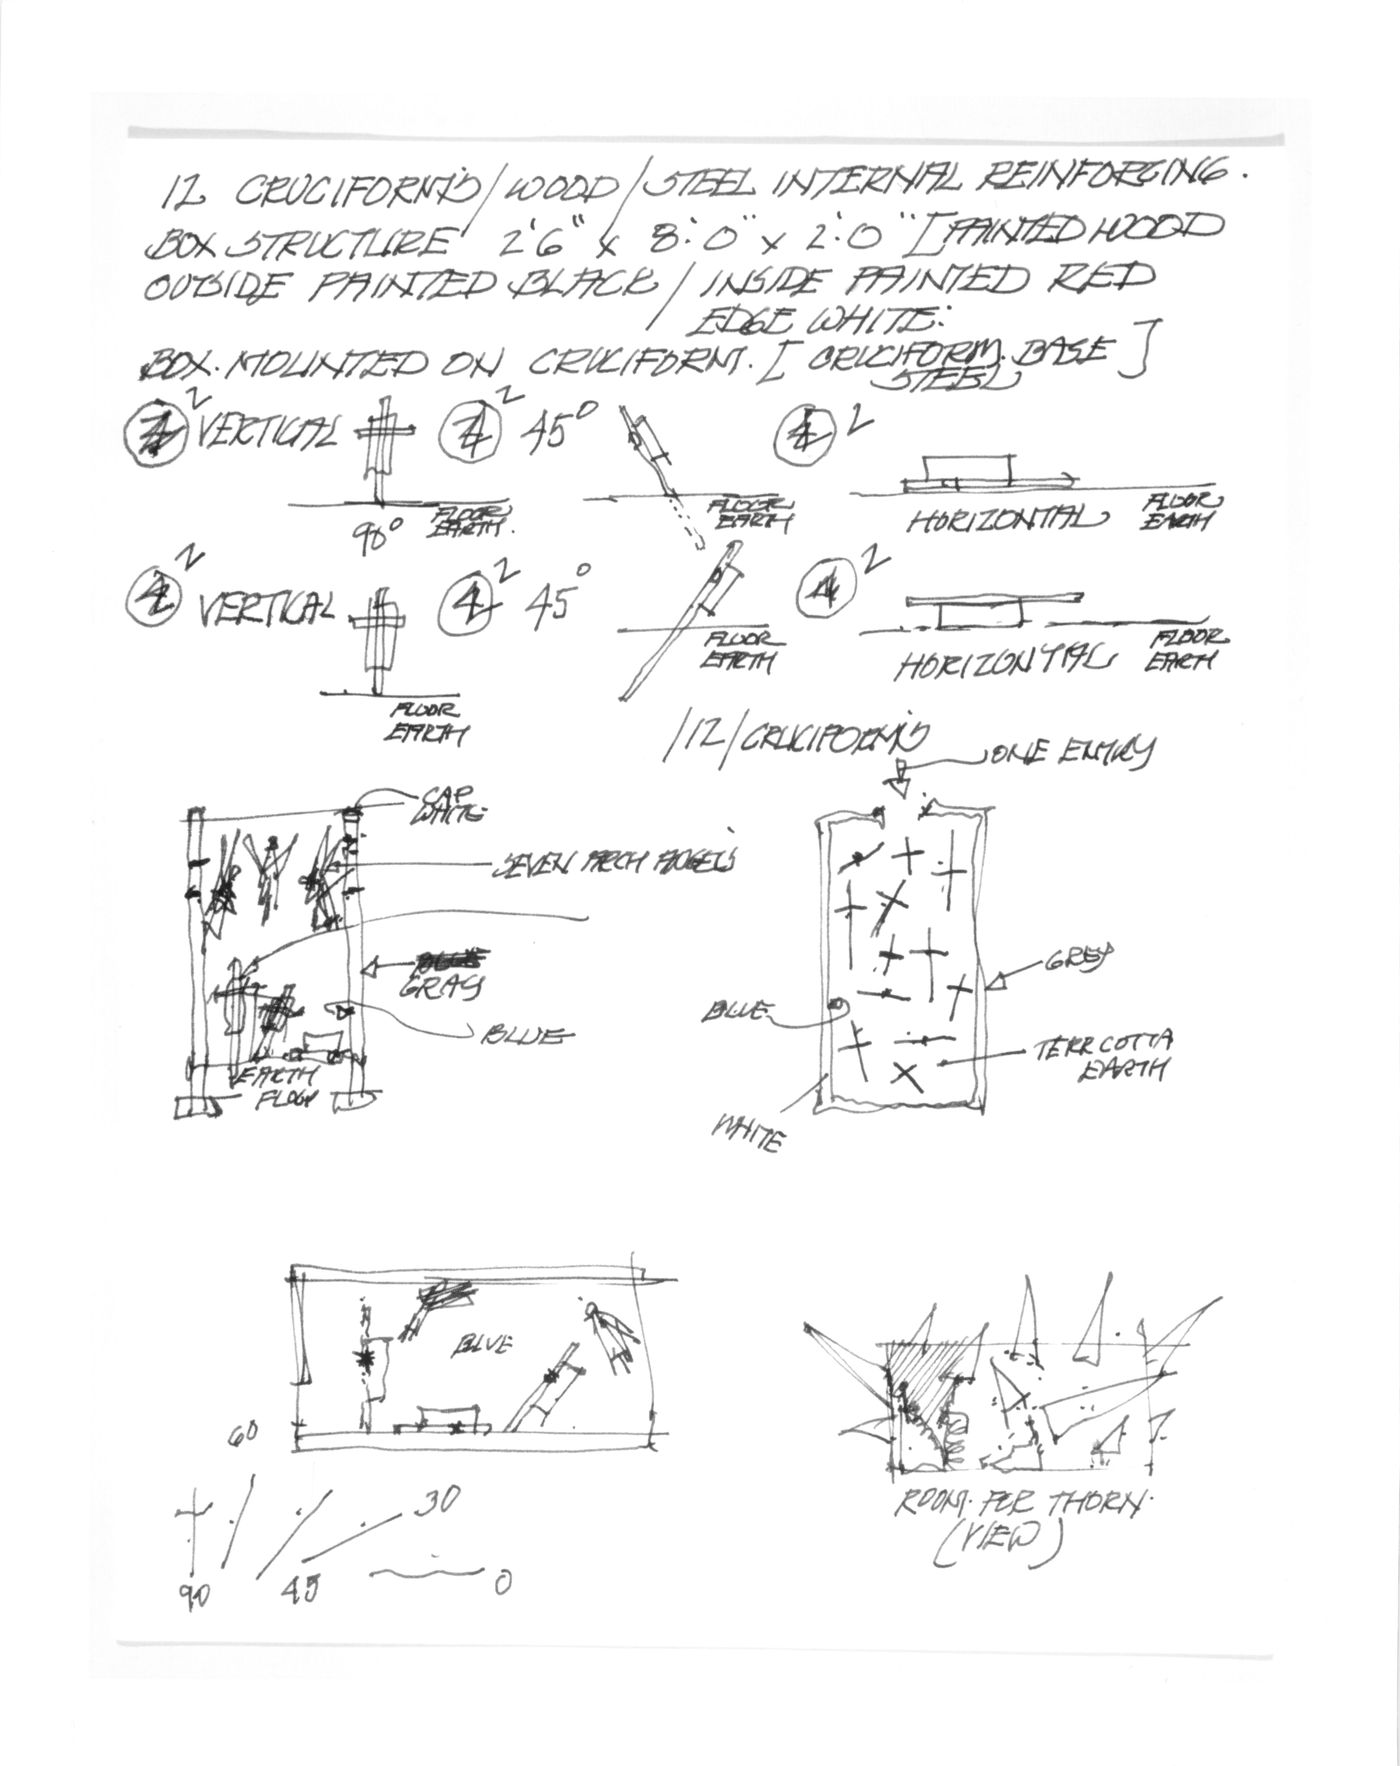 12 CRUCIFORMS / WOOD / STEEL INTERNAL REINFORCING.
BOX STRUCTURE 2'6" x 8'.0" x 2'.0" [PAINTED WOOD
OUTSIDE PAINTED BLACK / INSIDE PAINTED RED
EDGE WHITE.
BOX. MOUNTED ON CRUCIFORM. [CRUCIFORM. BASE]
STEEL
2 VERTICAL 4 2 45° 4 2
FLOOR EARTH.
90°
FLOOR EARTH
HORIZONTAL
FLOOR EARTH
4 2 VERTICAL 4 2 45° 4 2
FLOOR EARTH
FLOOR EARTH
HORIZONTAL
FLOOR EARTH
/12/ CRUCIFORMS
ONE ENTRY
CAP
WHITE
SEVEN ARCH ANGELS
GRAY
BLUE
EARTH
FLOOR
GREY
BLUE
TERRCOTTA
EARTH
WHITE
BLUE
60
30
90
45
0
ROOM. FOR THORN.
(VIEW)